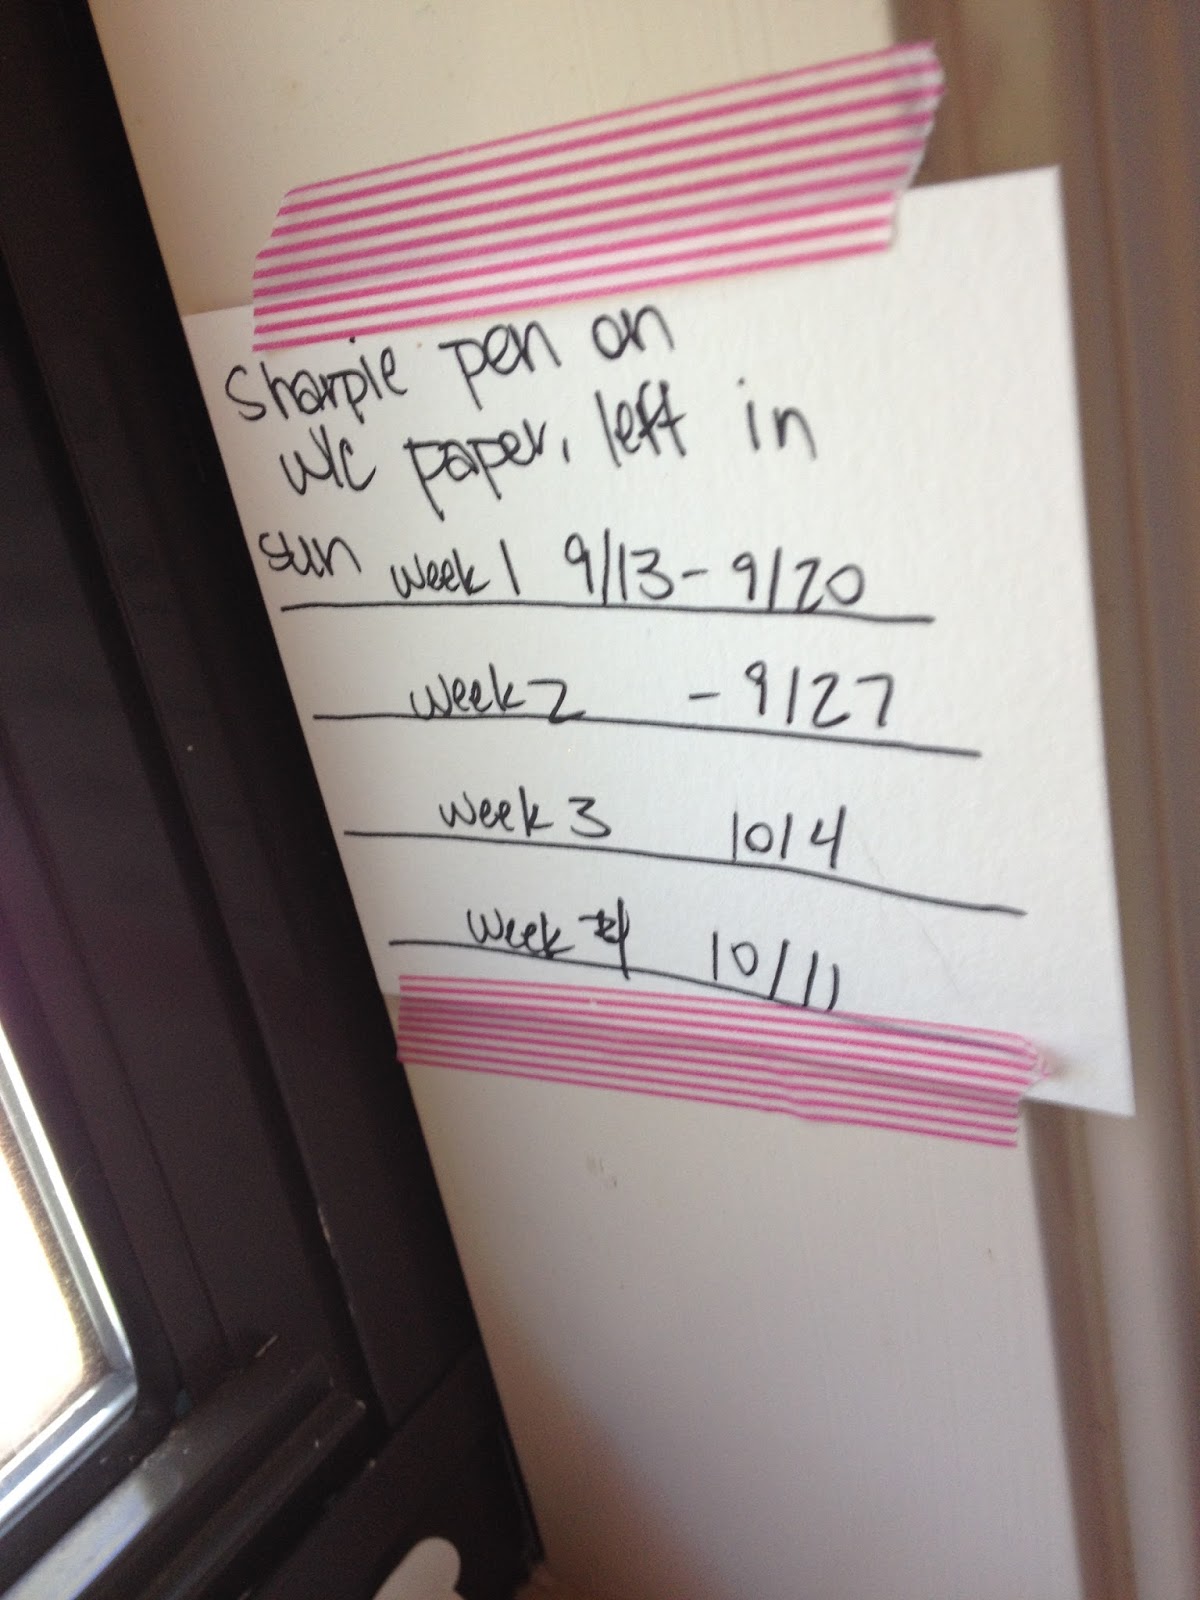 Sharpie pen on
w/c paper, left in
sun week 1 9/13 - 9/20
week 2 - 9/27
week 3 10/4
week 4 10/11